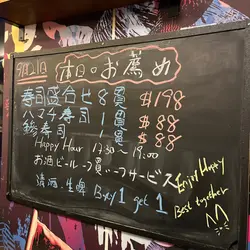 9月21日 本日のお薦め
寿司盛合せ 8貫 $198
ハマチ寿司 1貫 $88
鯵寿司 1貫 $88
Happy Hour 17:30~19:00
お酒ビール一つ買い一つサービス
清酒・生啤 Buy 1 get 1
Enjoy Happy
Best together